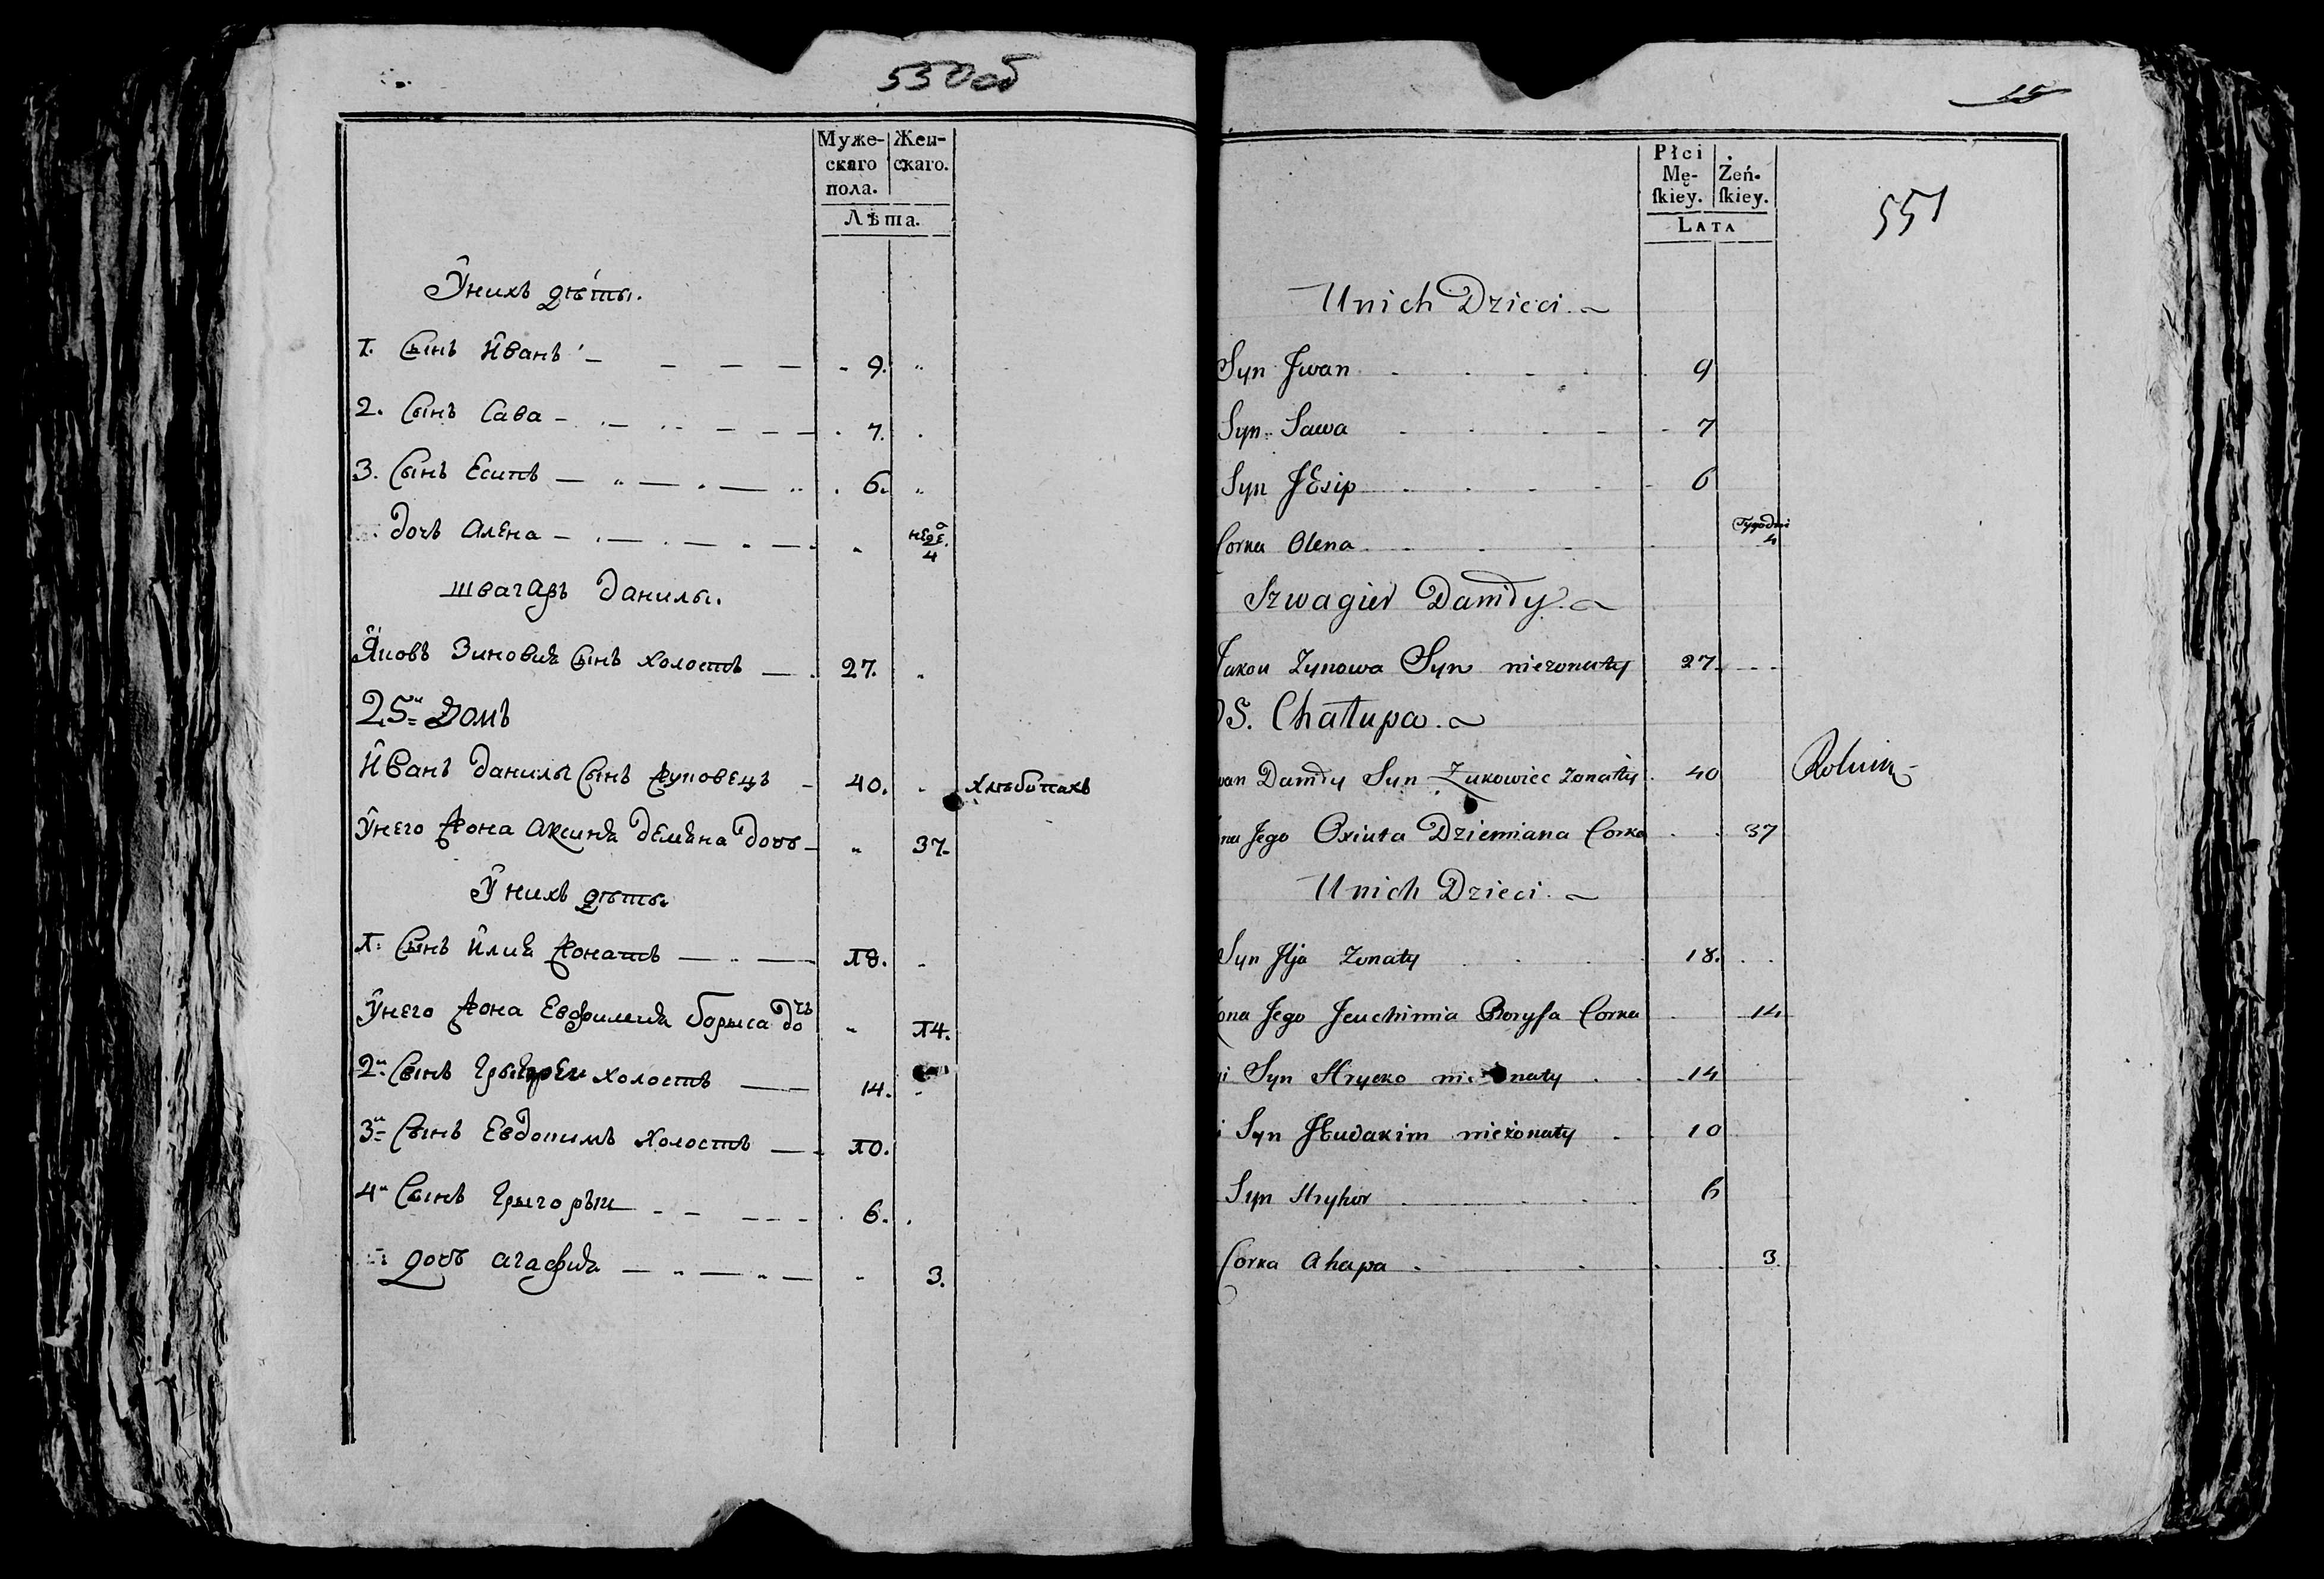 550об
Муже- Жен-
скаго скаго.
пола.
Лѣта.
Унихъ дѣти.
1. Сынъ Иванъ 9.
2. Сынъ Сава 7.
3. Сынъ Есипъ 6.
дочь Алена неде. 4
швагаръ данилы.
Яковъ Зиновия Сынъ холостъ 27.
25й домъ
Иванъ данилы Сынъ Жуковецъ 40. Хлебопахъ
Унего Жона Аксиня демяна дочь 37.
Унихъ дѣти.
1. Сынъ Илия Жонатъ 18.
Унего Жона Евфимия Борыса дочъ 14.
2й Сынъ холостъ 14.
3й Сынъ Евдокимъ Холостъ 10.
4й Сынъ Грыгорѣи 6.
дочь агафия 3.
15
Płci
Mę- Żeń-
ſkiey. ſkiey.
LATA
551
Unich Dzieci.
Syn Jwan 9
Syn Sawa 7
Syn JEsip 6
Corka Olena Tygodni 4
Szwagier Daniły.
Jakou Zynowa Syn niezonaty 27
5. Chałupa.
wan Daniły Syn Zukowiec Zonaty 40 Rolnik
na Jego Oxiuta Dziemiana Corka 37
Unich Dzieci.
Syn Jlja Zonaty 18.
ona Jego Jeuchimia Boryſa Corka 14
i Syn Hrycko niezonaty 14
i Syn JEudakim nieżonaty 10
Syn Hryhor 6
Corka Ahapa 3